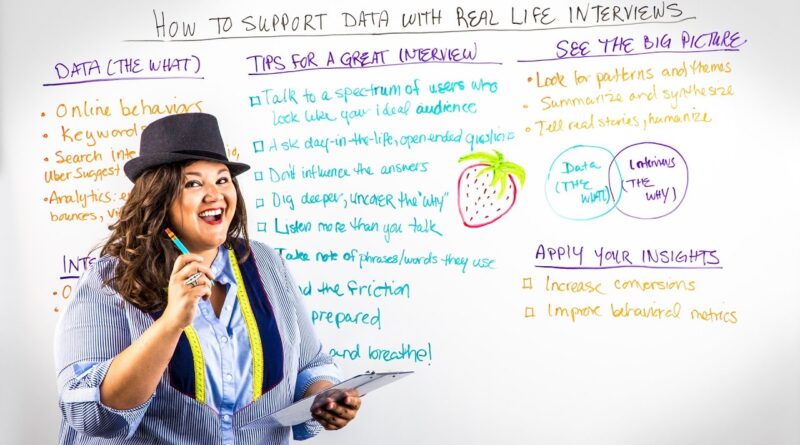 HOW TO SUPPORT DATA WITH REAL LIFE INTERVIEWS
DATA (THE WHAT)
• Online behaviors
• Keywords
• Search Inte
Uber Suggest
• Analytics: e
bounces, vi
INTE
TIPS FOR A GREAT INTERVIEW
Talk to a spectrum of users who
look like your ideal audience
Ask day-in-the-life, open ended questions
Don't influence the answers
Dig deeper, uncover the "why"
Listen more than you talk
Take note of phrases/words they use
the friction
prepared
and breathe!
SEE THE BIG PICTURE
• Look for patterns and themes
• Summarize and synthesize
• Tell real stories, humanize
Data
(THE
WHAT)
Interviews
(THE
WHY)
APPLY YOUR INSIGHTS
Increase conversions
Improve behavioral metrics